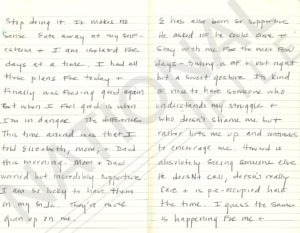 Stop doing it. It makes no
sense. Eats away at my self-
esteem + I am isolated for
days at a time. I had all
these plans for today +
finally was feeling good again
But when I feel good is when
I'm in danger. The difference
This time around was that I
told Elizabeth, mom, + Dad
this morning. Mom + Dad
worried but incredibly supportive
I am so lucky to have them
on my side. They've never
given up on me.
E has also been so supportive
He asked if he could come +
stay with me for the next few
days - timing is off + not right
but a sweet gesture. It's kind
of nice to have someone who
understands my struggle +
who doesn't shame me but
rather lifts me up and
to encourage me. is
absolutely seeing someone else
He doesn't call, doesn't really
care + is pre-occupied half
the time. I guess the same
is happening for me +